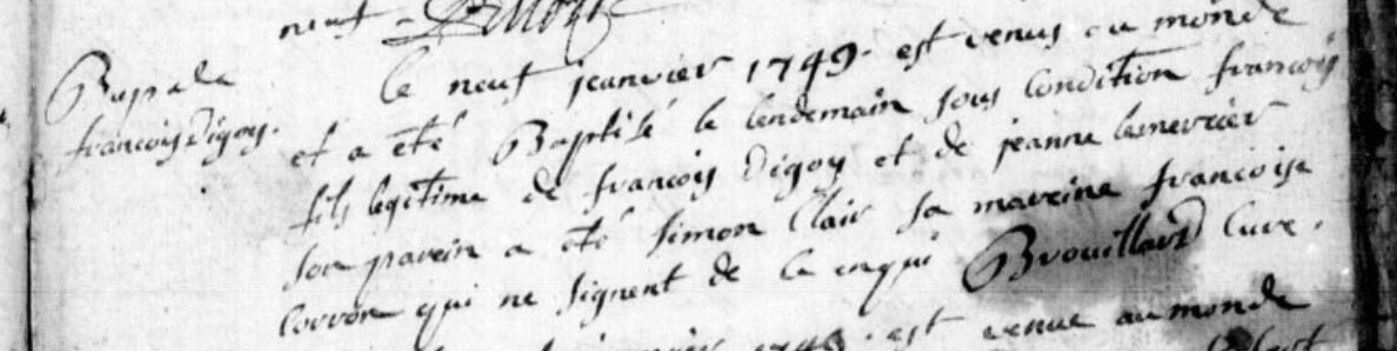 neuf
Bap de
francois Digoy.
le neuf jeanvier 1749. est venus au monde
et a eté Baptisé le lendemain sous condition francois
fils legitime de francois Digoy et de jeanne lemercier
son parein a eté simon Clair sa mareine francoise
corron qui ne signent de ce enqui Brouillard Cure.
1749 est venue au monde